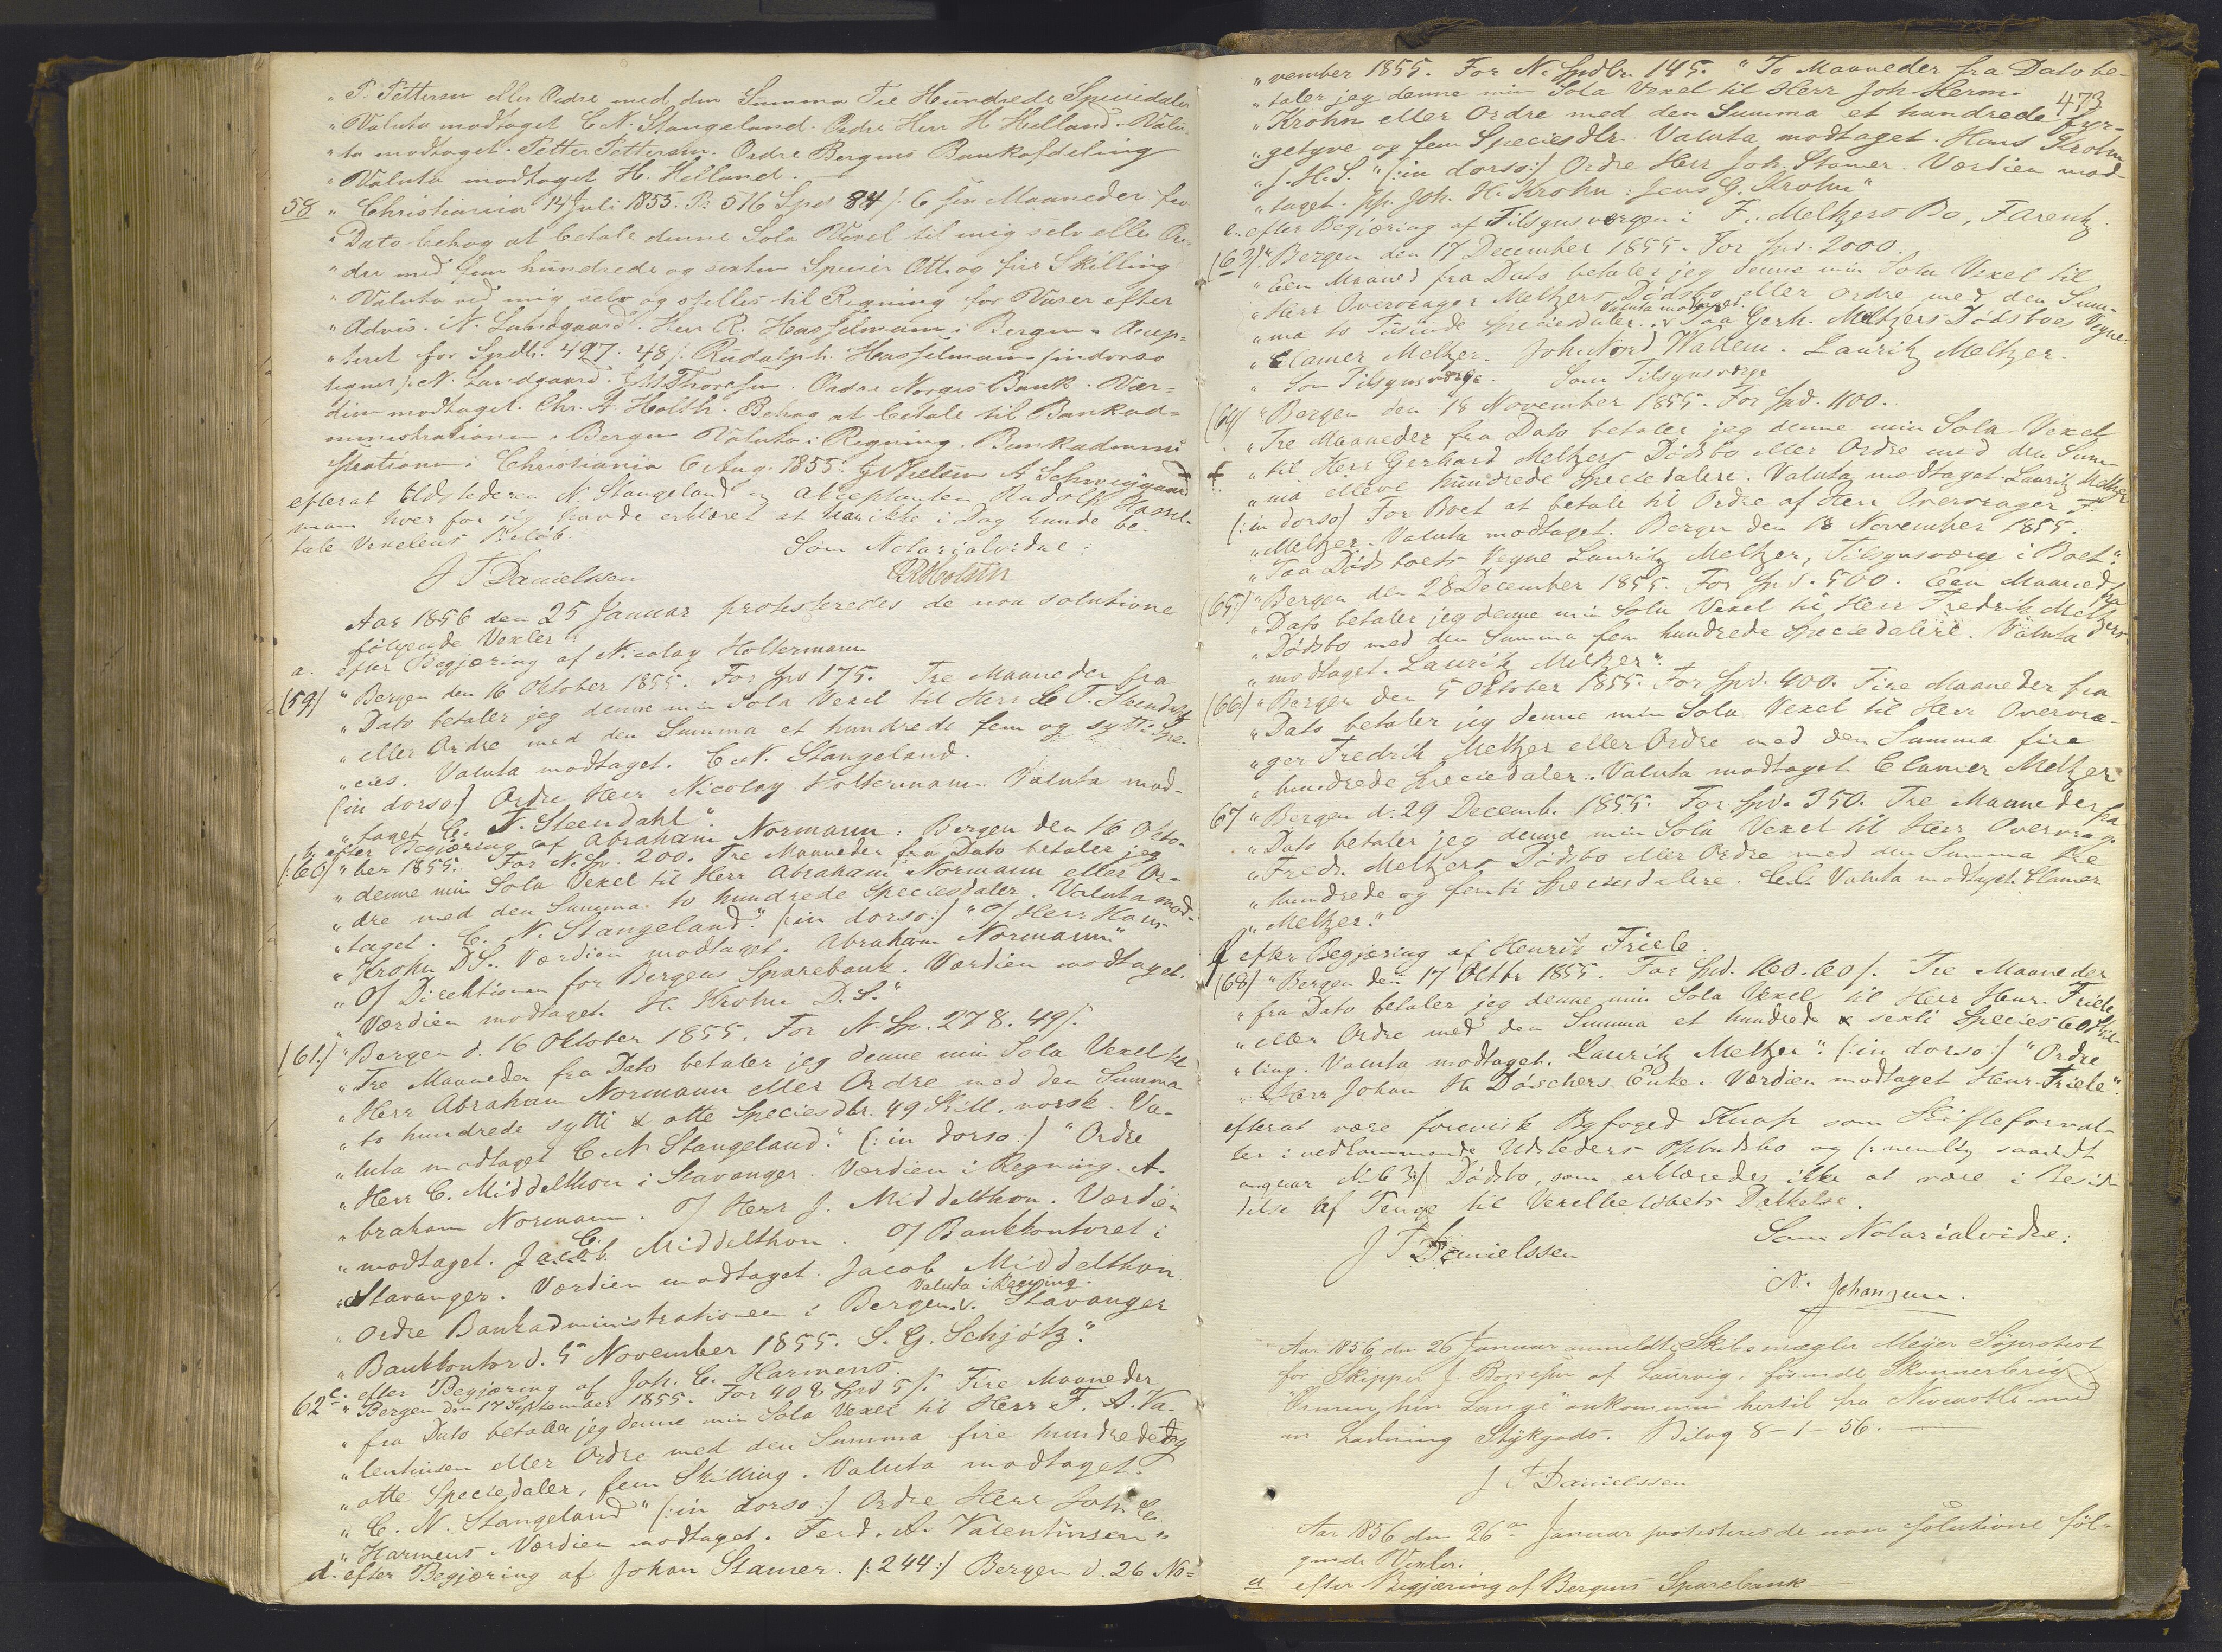 „P. Pettersen eller Ordre med den Summa Tre Hundrede Speciedaler
„Valuta modtaget C N. Stangeland. Ordre Herr H Helland. Valu-
„ta modtaget. Petter Pettersen. Ordre Bergens Bankafdeling
„Valuta modtaget H. Helland.
58 „Christiania 14 Juli 1855. Pr 516 Spd 84 /: 6 sex Maaneder fra
„Dato behag at betale denne Sola Vexel til mig selv eller Or-
„dre med fem hundrede og sexten Specier Otti og fire Skilling
„Valuta ved mig selv og stilles til Regning for Varer efter
„Advis. N. Landgaard. Herr R. Hasselmann i Bergen. Accep-
„teret for Spdlr. 427. 48 /. Rudolph Hasselmann (indorso
tegner) N. Landgaard. Thoresen. Ordre Norges Bank. Vær-
dien modtaget. Chr. A. Holth. Behag at betale til Bankad-
ministrationen i Bergen Valuta i Regning. Bankadmini
strationen i Christiania 6 Aug. 1855. Nielsen A Schweigaard
efterat Udstederen N. Stangeland og Acceptanten Rudolf Hassel-
mann hver for sig havde erklæret at han ikke i Dag kunde be-
tale Vexelens Beløb.
Som Notarialvidne:
J F Danielssen
Holstn
Aar 1856 den 25 Januar protesteredes de non solutione
følgende Vexler
a. efter Begjæring af Nicolay Holtermann
(59) „Bergen den 16 Oktober 1855. For Spd 175. Tre Maaneder fra
„Dato betaler jeg denne min Sola Vexel til Herr C T. Steendahl
„eller Ordre med den Summa et hundrede fem og sytti Spe-
„cies. Valuta modtaget. C N. Stangeland.
(in dorso:) Ordre Herr Nicolay Holtermann. Valuta mod-
„taget C. T. Steendahl"
b. efter Begjæring af Abraham Normann. Bergen den 16 Okto-
(:60) „ber 1855. For N. Sp. 200. Tre Maaneder fra Dato betaler jeg
„denne min Sola Vexel til Herr Abraham Normann eller Or-
„dre med den Summa to hundrede Speciesdaler. Valuta mod-
„taget. C. N. Stangeland." (:in dorso:) "O/ Herr Hans
„Krohn D.S. Værdien modtaget. Abraham Normann"
„O/ Direktionen for Bergens Sparebank. Værdien modtaget.
„Værdien modtaget. H. Krohn D. S."
(61:) „Bergen d. 16 Oktober 1855. For N. Sp. 278. 49/.
„Tre Maaneder fra Dato betaler jeg denne min Sola Vexel til
„Herr Abraham Normann eller Ordre med den Summa
„to hundrede sytti & otte Speciesdlr. 49 Skill. norsk. Va-
„luta modtaget C. N Stangeland." (:in dorso:) "Ordre
„Herr C. Middelthon i Stavanger. Værdien i Regning. A-
„braham Normann. O/ Herr J. Middelthon. Værdien
„modtaget. C. Middelthon. O/ Bankkontoret i
„Stavanger. Værdien modtaget. Jacob Middelthon
„Ordre Bankadministrationen i Bergen. v. Valuta i Regning. Stavanger
„Bankkontor d. 5 November 1855. S. G. Schjøtz."
c. efter Begjæring af Joh. C. Harmens.
62 „Bergen den 17 September 1855. For 408 Spd 5/. Fire Maaneder
„fra Dato betaler jeg denne min Sola Vexel til Herr F. A. Va-
„lentinsen eller Ordre med den Summa fire hundrede og
„otte Speciedaler, fem Skilling. Valuta modtaget.
„C. N. Stangeland" (:in dorso:) Ordre Herr Joh. C.
„Harmens. Værdien modtaget. Ferd. A. Valentinsen"
d. efter Begjæring af Johan Stamer. (:244:) Bergen d. 26 No-
473
„vember 1855. For N. Spdlr. 145. "To Maaneder fra Dato be-
„taler jeg denne min Sola Vexel til Herr Joh. Herm.
„Krohn eller Ordre med den Summa et hundrede fyr-
„getyve og fem Speciesdlr. Valuta modtaget. Hans Krohn
„J. H. S." (:in dorso:) Ordre Herr Joh. Stamer. Værdien mod-
„taget. pp. Joh. H. Krohn: Jens G. Krohn"
e. efter Begjæring af Tilsynsværgen i F. Meltzers Bo, F. Arentz.
(63) „Bergen den 17 December 1855. For Spd. 2000.
„Een Maaned fra Dato betaler jeg denne min Sola Vexel til
„Herr Overvrager Meltzers Dødsbo eller Ordre med den Sum-
„ma to Tusinde Speciesdaler. v Valuta modtaget. Paa Gerh. Meltzers Dødsboes Vegne
„Clamer Meltzer. Joh Nord. Wallem. Lauritz Meltzer.
„Som Tilsynsværge. Som Tilsynsværge
(64) „Bergen den 18 November 1855. For Spd. 1100.
„Tre Maaneder fra Dato betaler jeg denne min Sola-Vexel
„til Herr Gerhard Meltzers Dødsbo eller Ordre med den Sum-
„ma elleve hundrede Speciedalere. Valuta modtaget. Lauritz Meltzer
(:in dorso) For Boet at betale til Ordre af Herr Overvrager F.
„Meltzer. Valuta modtaget. Bergen den 18 November 1855.
„Paa Dødsboets Vegne Lauritz Meltzer, Tilsynsværge i Boet."
(65:) „Bergen den 28 December 1855. For Spd. 500. Een Maaned fra
„Dato betaler jeg denne min Sola Vexel til Herr Fredrik Meltzers
„Dødsbo med den Summa fem hundrede Speciedalere. Valuta
„modtaget. Lauritz Meltzer".
(66) „Bergen den 5 Oktober 1855. For Spd. 400. Fire Maaneder fra
„Dato betaler jeg denne min Sola Vexel til Herr Overvra-
„ger Fredrik Meltzer eller Ordre med den Summa fire
„hundrede Speciedaler. Valuta modtaget Clamer Meltzer
67 „Bergen d. 29 Decemb. 1855. For Spd. 350. Tre Maaneder fra
„Dato betaler jeg denne min Sola Vexel til Herr Overvrager
„Fredr. Meltzers Dødsbo eller Ordre med den Summa tre
„hundrede og femti Speciesdalere. Valuta modtaget. Clamer
„Meltzer."
f efter Begjæring af Henrik Friele.
(68) „Bergen den 17 Octbr 1855. For Spd. 160. 60/. Tre Maaneder
„fra Dato betaler jeg denne min Sola Vexel til Herr Henr. Friele
„eller Ordre med den Summa et hundrede & sexti Species 60 Skil-
„ling. Valuta modtaget. Lauritz Meltzer". (:in dorso:) "Ordre
„Herr Johan H. Döschers Enke. Værdien modtaget Henr. Friele".
efterat være forevist Byfoged Knap som Skifteforval-
ter i vedkommende Udsteders Opbudsbo og (:nemlig saavidt
angaar N. 63:) Dødsbo, som erklæredes ikke at være i Besid-
delse af Penge til Vexelbeløbets Dækkelse.
Som Notarialvidne:
J F Danielssen
N. Johansen.
Aar 1856 den 26 Januar anmeldte Skibsmægler Meyer Søprotest
for Skipper J. Borresen af Laurvig, førende Skonnerbrig
"Ormen hin Lange" ankommen hertil fra Newcastle med
en Ladning Stykgods. Bilag 8-1-56.
J F Danielssen
Aar 1856 den 26 Januar protesteres de non solutione føl-
gende Vexler.
a efter Begjæring af Bergens Sparebank